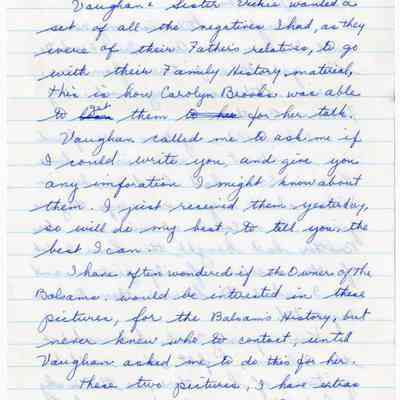 Vaughan & Sister Vickie wanted a
set of all the negatives I had, as they
were of their Father's relatives, to go
with their Family History, material,
this is how Carolyn Brooks was able
to get them to her for her talk.
Vaughan called me to ask me if
I could write you and give you
any imforation I might know about
them. I just received them yesterday,
so will do my best, to tell you, the
best I can.
I have often wondered if the Owner of the
Balsams. would be interested in these
pictures, for the Balsam's History, but
never knew who to contact, until
Vaughan asked me to do this for her.
These two pictures, I have extras